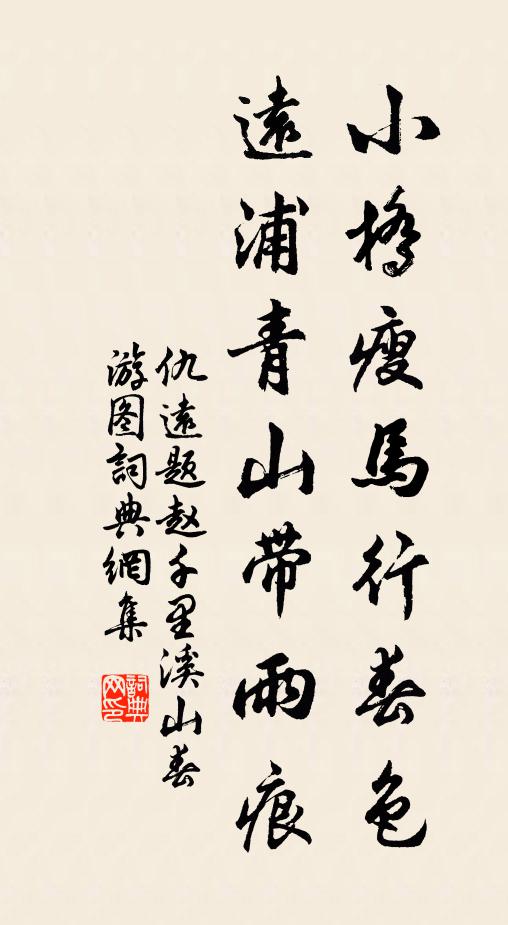 小橋瘦馬行春色
遠浦青山带雨痕
仇遠题赵千里溪山春
游图詞典網集
詞典网印